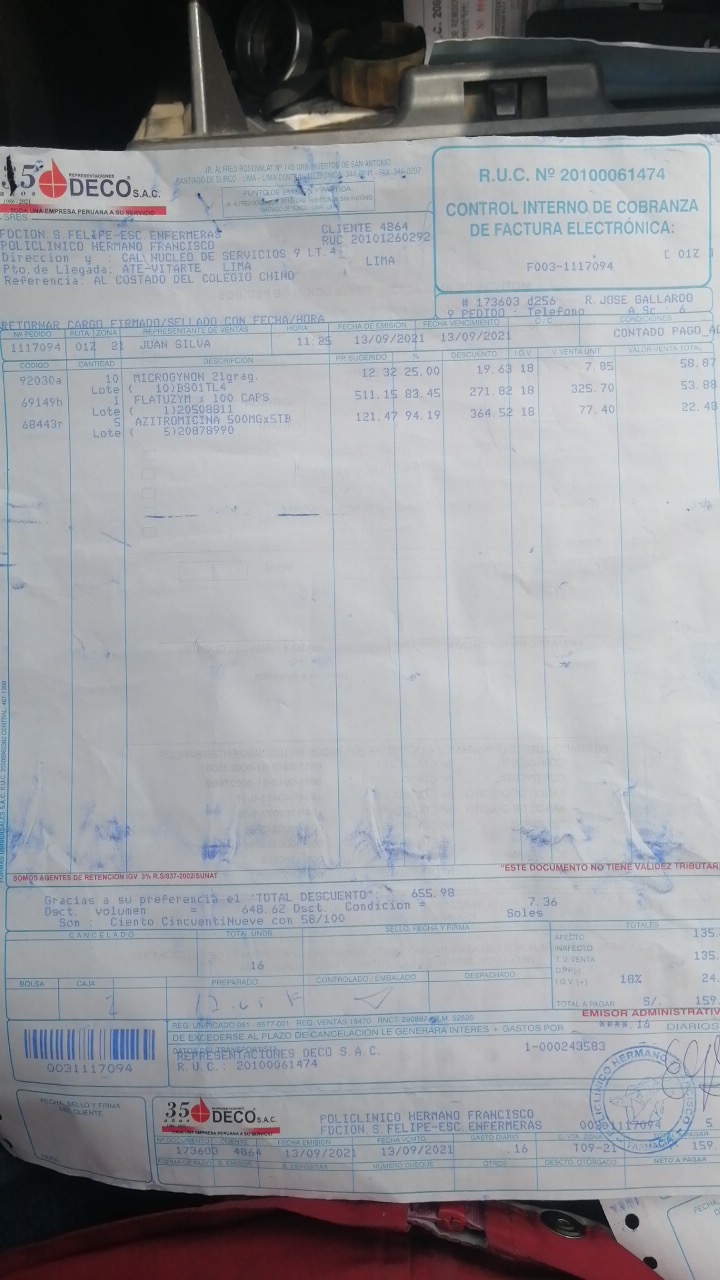 35 años
1986-2021
REPRESENTACIONES
DECO S.A.C.
TODA UNA EMPRESA PERUANA A SU SERVICIO
R.U.C. Nº 20100061474
CONTROL INTERNO DE COBRANZA
DE FACTURA ELECTRÓNICA:
F003-1117094
SRES.
FDCION.S.FELIPE-ESC.ENFERMERAS CLIENTE 4864
POLICLINICO HERMANO FRANCISCO RUC 20101260292
Direccion y : CAL NUCLEO DE SERVICIOS 9 LT.4
Pto.de Llegada: ATE-VITARTE LIMA LIMA
Referencia: AL COSTADO DEL COLEGIO CHINO
# 173603 d256 R.JOSE GALLARDO
9 PEDIDO : Telefono A.Sc 6
RETORNAR CARGO FIRMADO/SELLADO CON FECHA/HORA
Nº PEDIDO RUTA ZONA REPRESENTANTE DE VENTAS HORA FECHA DE EMISION FECHA VENCIMIENTO O/C CONDICIONES
1117094 01Z 21 JUAN SILVA 11:25 13/09/2021 13/09/2021 CONTADO PAGO
CODIGO CANTIDAD DESCRIPCIÓN P.P. SUGERIDO % DESCUENTO I.G.V V. VENTA UNIT VALOR VENTA TOTAL
92030a 10 MICROGYNON 21grag. 12.32 25.00 19.63 18 7.85 58.87
Lote ( 10)BS01TL4
69149h 1 FLATUZYM x 100 CAPS 511.15 83.45 271.82 18 325.70 53.88
Lote ( 1)20508B11
68443r 5 AZITROMICINA 500MGx5TB 121.47 94.19 364.52 18 77.40 22.48
Lote ( 5)20878990
SOMOS AGENTES DE RETENCION IGV 3% R.S/037-2002/SUNAT
"ESTE DOCUMENTO NO TIENE VALIDEZ TRIBUTAR
Gracias a su preferencia el 'TOTAL DESCUENTO': 655.98
Dsct. volumen = 648.62 Dsct. Condicion = 7.36
Son : Ciento CincuentiNueve con 58/100 Soles
CANCELADO TOTAL UNDS SELLO, FECHA Y FIRMA TOTALES
16
AFECTO 135.
INAFECTO
T. V. VENTA 135.
I.G.V. (+) 18% 24.
TOTAL A PAGAR S/. 159.
BOLSA CAJA PREPARADO CONTROLADO / EMBALADO DESPACHADO
EMISOR ADMINISTRATIV
DE EXCEDERSE AL PLAZO DE CANCELACION LE GENERARA INTERES + GASTOS POR ****.16 DIARIOS
0031117094
REPRESENTACIONES DECO S.A.C. 1-000243583
R.U.C.: 20100061474
FECHA, SELLO Y FIRMA
DEL CLIENTE
35
REPRESENTACIONES
DECO S.A.C.
TODA UNA EMPRESA PERUANA A SU SERVICIO
POLICLINICO HERMANO FRANCISCO
FDCION.S.FELIPE-ESC.ENFERMERAS 0031117094 5
Nº DOCUMENTO CLIENTE FECHA EMISION FECHA VCMTO. GASTO DIARIO
173603 4864 13/09/2021 13/09/2021 .16 T09-21 159.
NUMERO CHEQUE OTROS DESCTO. OTORGADO NETO A PAGAR